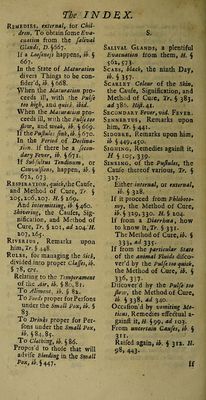 The INDEX.
REMEDIES, external, for Chil-
dren, To obtain some Eva-
cuation from the salival
Glands, D. §667.
If a Loosness happens, ib. §
667.
In the State of Maturation
divers Things to be con-
sider'd, ib. § 668.
When the Maturation pro-
ceeds ill, with the Pulse
too high, and quick, ibid.
When the Maturation pro-
ceeds ill, with the Pulse too
slow, and weak, ib. §669.
If the Pustules sink, ib. § 670.
In the Period of Declina-
tion. If there be a secon-
dary Fever, ib. § 671.
If Subsultus Tendinum, or
Convulsions, happen, ib. §
672, 673
RESPIRATION, quick, the Cause,
and Method of Cure, Tr. §
205, 206, 207. H § 169.
And intermitting, ib. § 460.
shivering, the Causes, Sig-
nification, and Method of
Cure, Tr. § 201, ad 204. H.
207, 265.
RIVERIUS, Remarks upon
him, Tr. § 448
RULES, for managing the Sick,
divided into proper Classes, ib.
§ 78, &c.
Relating to the Temperament
of the Air, ib. § 80, 81.
To Aliment, ib. § 82.
To Foods proper for Persons
under the Small Pox, ib. §
83
To Drinks proper for Per-
sons under the Small Pox,
ib. § 84, 85.
To Cloathing, ib. § 86.
Propos'd to those that will
advise Bleeding in the Small
Pox, ib. § 447.
S.
SALIVAL GLANDS, a plentiful
Evacuation from them, H. §
562, 573.
SCABS, black, the ninth Day,
ib. § 357.
SCARLET Colour of the Skin,
the Cause, Signification, and
Method of Cure, Tr. § 383,
ad 386. Hist. 41.
SECONDARY Fever, vid. FEVER.
SENNERTUS, Remarks upon
him, Tr. §441.
SIDOBRE, Remarks upon him,
ib. § 449, 450.
SIGHING, Remedies against it,
H § 101, 339.
SINKING, of the Pustules, the
Cause thereof various, Tr. §
327.
Either internal, or external,
ib. § 328.
If it proceed from Phleboto-
my, the Method of Cure,
ib. § 329, 330. H. § 102.
If from a Diarrhœa, how
to know it, Tr. § 331.
The Method of Cure, ib. §
333, ad 335.
If from the particular State
of the animal Fluids disco-
ver'd by the Pulse too quick,
the Method of Cure, ib. §
336, 337.
Discover'd by the Pulse too
slow, the Method of Cure,
ib. § 338, ad 340.
Occasion'd by vomiting Me-
ticus, Remedies effectual a-
gainst it, H. § 99, ad 103.
From uncertain Causes, ib. §
311.
Raised again, ib. § 312. H.
98, 443.
If